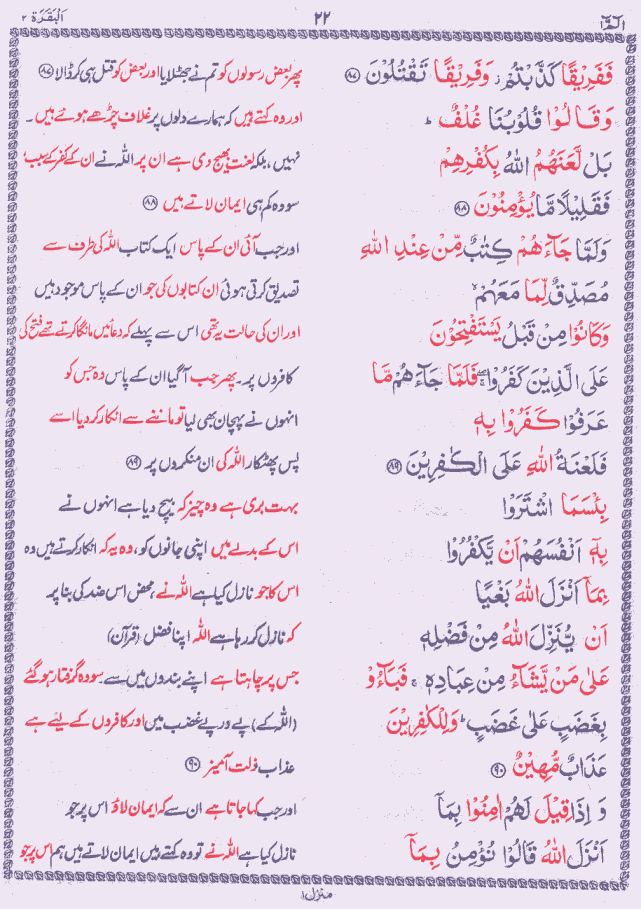 الٓمّٓ ١
٢٢
اَلْبَقَرَة ٢
فَفَرِيْقًا كَذَّبْتُمْ ز وَفَرِيْقًا تَقْتُلُوْنَ ﴿٨٧﴾ پھر بعض رسولوں کو تم نے جھٹلایا اور بعض کو قتل ہی کر ڈالا ﴿٨٧﴾
وَقَالُوْا قُلُوْبُنَا غُلْفٌ ط اور وہ کہتے ہیں کہ ہمارے دلوں پر غلاف چڑھے ہوئے ہیں ۔
بَلْ لَّعَنَهُمُ اللهُ بِكُفْرِهِمْ نہیں، بلکہ لعنت بھیج دی ہے ان پر اللہ نے ان کے کفر کے سبب،
فَقَلِيْلًا مَّا يُؤْمِنُوْنَ ﴿٨٨﴾ سو وہ کم ہی ایمان لاتے ہیں ﴿٨٨﴾
وَلَمَّا جَآءَهُمْ كِتٰبٌ مِّنْ عِنْدِ اللهِ اور جب آئی ان کے پاس ایک کتاب اللہ کی طرف سے
مُصَدِّقٌ لِّمَا مَعَهُمْ لا تصدیق کرتی ہوئی ان کتابوں کی جو ان کے پاس موجود ہیں
وَكَانُوْا مِنْ قَبْلُ يَسْتَفْتِحُوْنَ اور ان کی حالت یہ تھی اس سے پہلے کہ دعائیں مانگا کرتے تھے فتح کی
عَلَى الَّذِيْنَ كَفَرُوْا ۚ فَلَمَّا جَآءَهُمْ مَّا کافروں پر۔ پھر جب آ گیا ان کے پاس وہ جس کو
عَرَفُوْا كَفَرُوْا بِهٖ انہوں نے پہچان بھی لیا تو ماننے سے انکار کر دیا اسے
فَلَعْنَةُ اللهِ عَلَى الْكٰفِرِيْنَ ﴿٨٩﴾ پس پھٹکار اللہ کی ان منکروں پر ﴿٨٩﴾
بِئْسَمَا اشْتَرَوْا بہت بری ہے وہ چیز کہ بیچ دیا ہے انہوں نے
بِهٖۤ اَنْفُسَهُمْ اَنْ يَّكْفُرُوْا اس کے بدلے میں اپنی جانوں کو، وہ یہ کہ انکار کرتے ہیں وہ
بِمَاۤ اَنْزَلَ اللهُ بَغْيًا اس کا جو نازل کیا ہے اللہ نے، محض اس ضد کی بنا پر
اَنْ يُّنَزِّلَ اللهُ مِنْ فَضْلِهٖ کہ نازل کر رہا ہے اللہ اپنا فضل (قرآن)
عَلٰى مَنْ يَّشَآءُ مِنْ عِبَادِهٖ ۚ فَبَآءُوْ جس پر چاہتا ہے اپنے بندوں میں سے۔ سو وہ گرفتار ہو گئے
بِغَضَبٍ عَلٰى غَضَبٍ ط وَلِلْكٰفِرِيْنَ (اللہ کے) پے در پے غضب میں اور کافروں کے لیئے ہے
عَذَابٌ مُّهِيْنٌ ﴿٩٠﴾ عذاب ذلت آمیز ﴿٩٠﴾
وَ اِذَا قِيْلَ لَهُمْ اٰمِنُوْا بِمَاۤ اور جب کہا جاتا ہے ان سے کہ ایمان لاؤ اس پر جو
اَنْزَلَ اللهُ قَالُوْا نُؤْمِنُ بِمَاۤ نازل کیا ہے اللہ نے تو وہ کہتے ہیں ایمان لاتے ہیں ہم اس پر جو
منزل ١